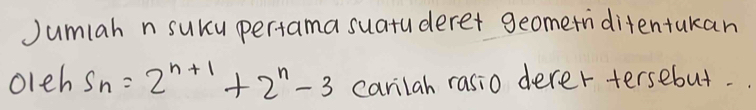 Jumlah n suku pertama suatu deret geometri ditentukan
oleh Sn = 2^{n+1} + 2^n - 3 carilah rasio deret tersebut.